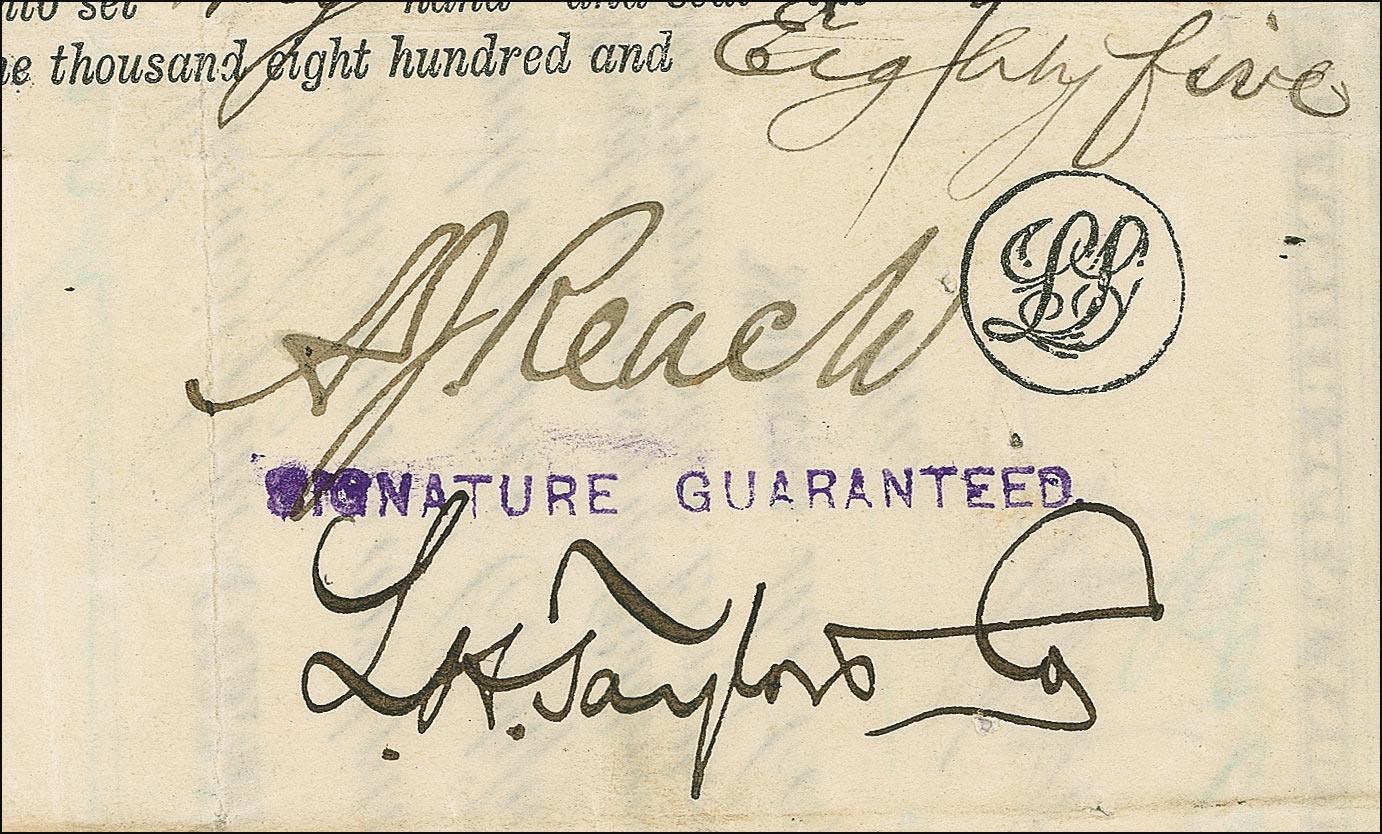 nto set my hand and seal the
ne thousand eight hundred and Eighty five
AJ Reach
LS
SIGNATURE GUARANTEED.
L.H. Taylor & Co